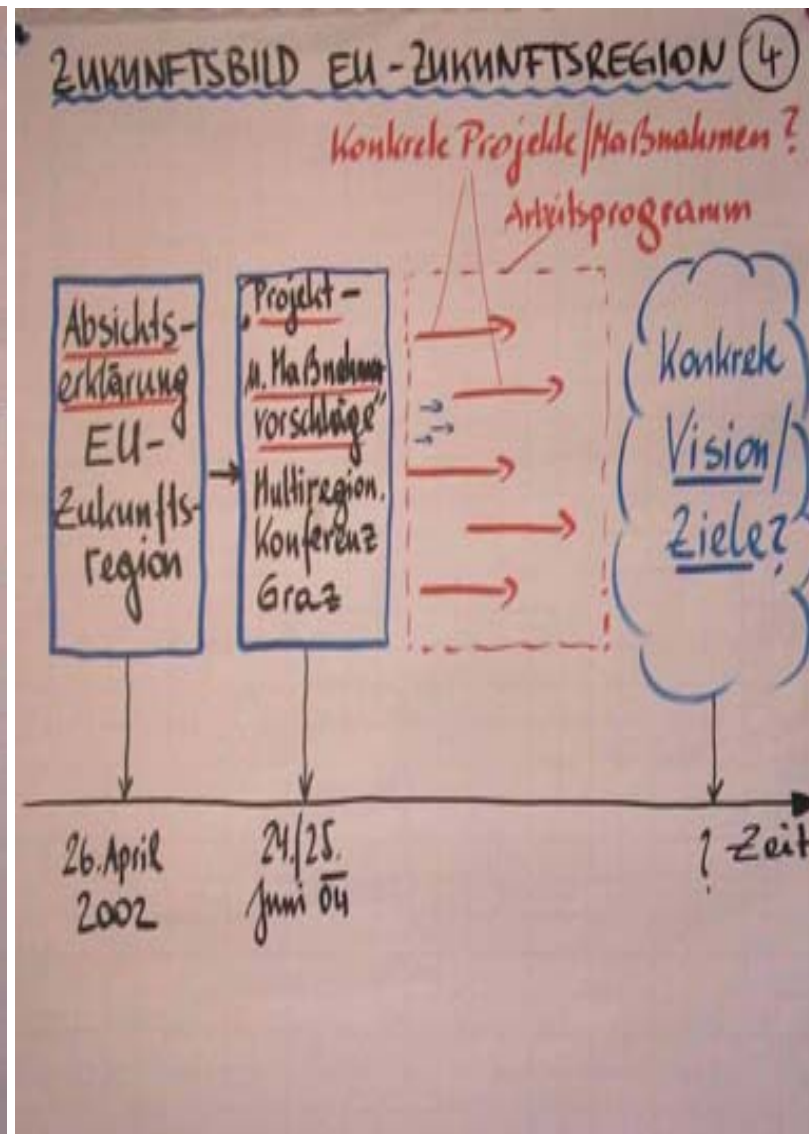 ZUKUNFTSBILD EU-ZUKUNFTSREGION 4
Konkrete Projekte/Maßnahmen?
Arbeitsprogramm
Absichts-
erklärung
EU-
Zukunfts-
region
"Projekt-
u. Maßnahmen
vorschläge"
Multiregion.
Konferenz
Graz
Konkrete
Vision/
Ziele?
26. April
2002
24./25.
Juni 04
? Zeit